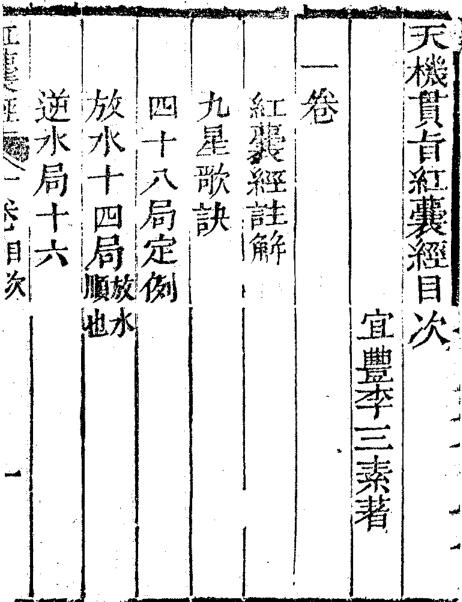 天機貫旨紅囊經目次
宜豐李三素著
一卷
紅囊經註解
九星歌訣
四十八局定例
放水十四局放水順也
逆水局十六
紅囊經 一卷目次 一